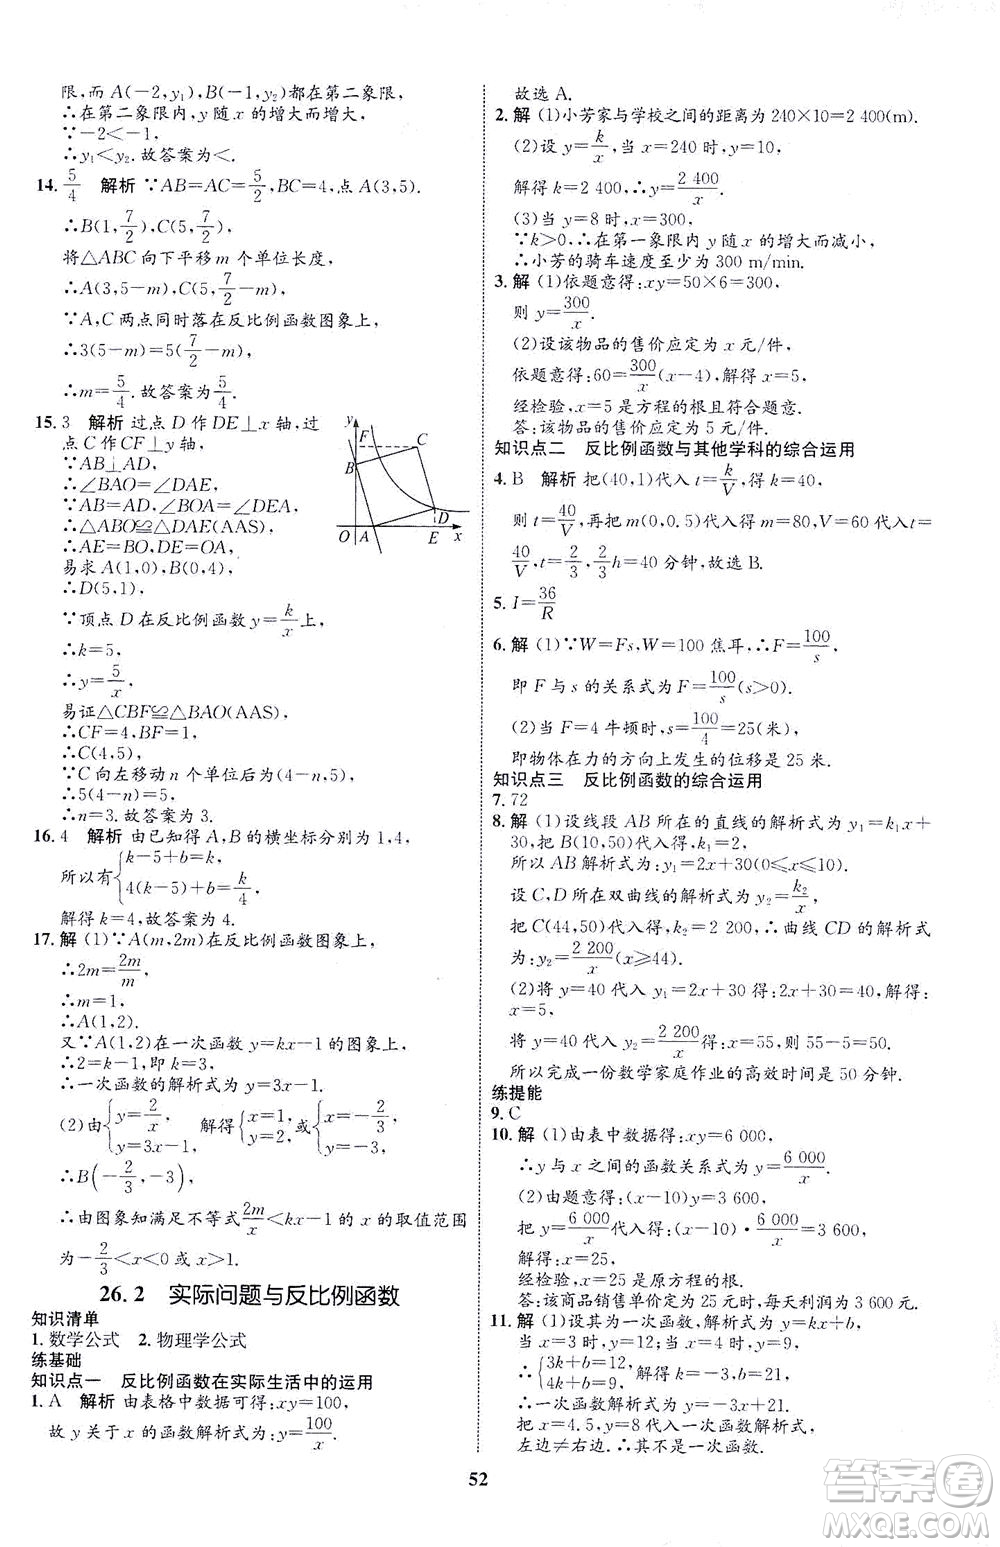 限,而 A(-2,y₁),B(-1,y₂)都在第二象限,
∴在第二象限内,y 随 x 的增大而增大,
∵-2<-1,
∴y₁<y₂.故答案为<.
14. 5/4 解析 ∵AB=AC=5/2,BC=4,点 A(3,5).
∴B(1,7/2),C(5,7/2),
将△ABC 向下平移 m 个单位长度,
∴A(3,5-m),C(5,7/2-m),
∵A,C 两点同时落在反比例函数图象上,
∴3(5-m)=5(7/2-m),
∴m=5/4.故答案为5/4.
15. 3 解析 过点 D 作 DE⊥x 轴,过
点 C 作 CF⊥y 轴,
∵AB⊥AD,
∴∠BAO=∠DAE,
∵AB=AD,∠BOA=∠DEA,
∴△ABO≌△DAE(AAS),
∴AE=BO,DE=OA,
易求 A(1,0),B(0,4),
∴D(5,1),
∵顶点 D 在反比例函数 y=k/x上,
∴k=5,
∴y=5/x,
易证△CBF≌△BAO(AAS),
∴CF=4,BF=1,
∴C(4,5),
∵C 向左移动 n 个单位后为(4-n,5),
∴5(4-n)=5,
∴n=3.故答案为 3.
y F C B D O A E x
16. 4 解析 由已知得 A,B 的横坐标分别为 1,4,
所以有{k-5+b=k, 4(k-5)+b=k/4,
解得 k=4,故答案为 4.
17. 解 (1)∵A(m,2m)在反比例函数图象上,
∴2m=2m/m,
∴m=1,
∴A(1,2).
又∵A(1,2)在一次函数 y=kx-1 的图象上,
∴2=k-1,即 k=3,
∴一次函数的解析式为 y=3x-1.
(2)由{y=2/x, y=3x-1, 解得{x=1, y=2或{x=-2/3, y=-3,
∴B(-2/3,-3),
∴由图象知满足不等式2m/x<kx-1 的 x 的取值范围
为-2/3<x<0 或 x>1.
26.2 实际问题与反比例函数
知识清单
1. 数学公式 2. 物理学公式
练基础
知识点一 反比例函数在实际生活中的运用
1. A 解析 由表格中数据可得:xy=100,
故 y 关于 x 的函数解析式为:y=100/x.
故选 A.
2. 解 (1)小芳家与学校之间的距离为 240×10=2 400(m).
(2)设 y=k/x,当 x=240 时,y=10,
解得 k=2 400,∴y=2 400/x.
(3)当 y=8 时,x=300,
∵k>0,∴在第一象限内 y 随 x 的增大而减小,
∴小芳的骑车速度至少为 300 m/min.
3. 解 (1)依题意得:xy=50×6=300,
则 y=300/x.
(2)设该物品的售价应定为 x 元/件,
依题意得:60=300/x(x-4),解得 x=5,
经检验,x=5 是方程的根且符合题意.
答:该物品的售价应定为 5 元/件.
知识点二 反比例函数与其他学科的综合运用
4. B 解析 把(40,1)代入 t=k/V,得 k=40,
则 t=40/V,再把(m,0.5)代入得 m=80,V=60 代入 t=
40/V,t=2/3,2/3h=40 分钟,故选 B.
5. I=36/R
6. 解 (1)∵W=Fs,W=100 焦耳,∴F=100/s,
即 F 与 s 的关系式为 F=100/s(s>0).
(2)当 F=4 牛顿时,s=100/4=25(米),
即物体在力的方向上发生的位移是 25 米.
知识点三 反比例函数的综合运用
7. 72
8. 解 (1)设线段 AB 所在的直线的解析式为 y₁=k₁x+
30,把 B(10,50)代入得,k₁=2,
所以 AB 解析式为:y₁=2x+30(0≤x≤10).
设 C,D 所在双曲线的解析式为 y₂=k₂/x,
把 C(44,50)代入得,k₂=2 200,∴曲线 CD 的解析式
为:y₂=2 200/x(x≥44).
(2)将 y=40 代入 y₁=2x+30 得:2x+30=40,解得:
x=5,
将 y=40 代入 y₂=2 200/x得:x=55,则 55-5=50,
所以完成一份数学家庭作业的高效时间是 50 分钟.
练提能
9. C
10. 解 (1)由表中数据得:xy=6 000,
∴y 与 x 之间的函数关系式为 y=6 000/x.
(2)由题意得:(x-10)y=3 600,
把 y=6 000/x代入得:(x-10)·6 000/x=3 600,
解得:x=25,
经检验,x=25 是原方程的根.
答:该商品销售单价定为 25 元时,每天利润为 3 600 元.
11. 解 (1)设其为一次函数,解析式为 y=kx+b,
当 x=3 时,y=12;当 x=4 时,y=9,
∴{12=3k+b, 9=4k+b, 解得 k=-3,b=21,
∴一次函数解析式为 y=-3x+21.
把 x=4.5,y=8 代入一次函数解析式,
左边≠右边.∴其不是一次函数.
52
答案圈
MXQE.COM